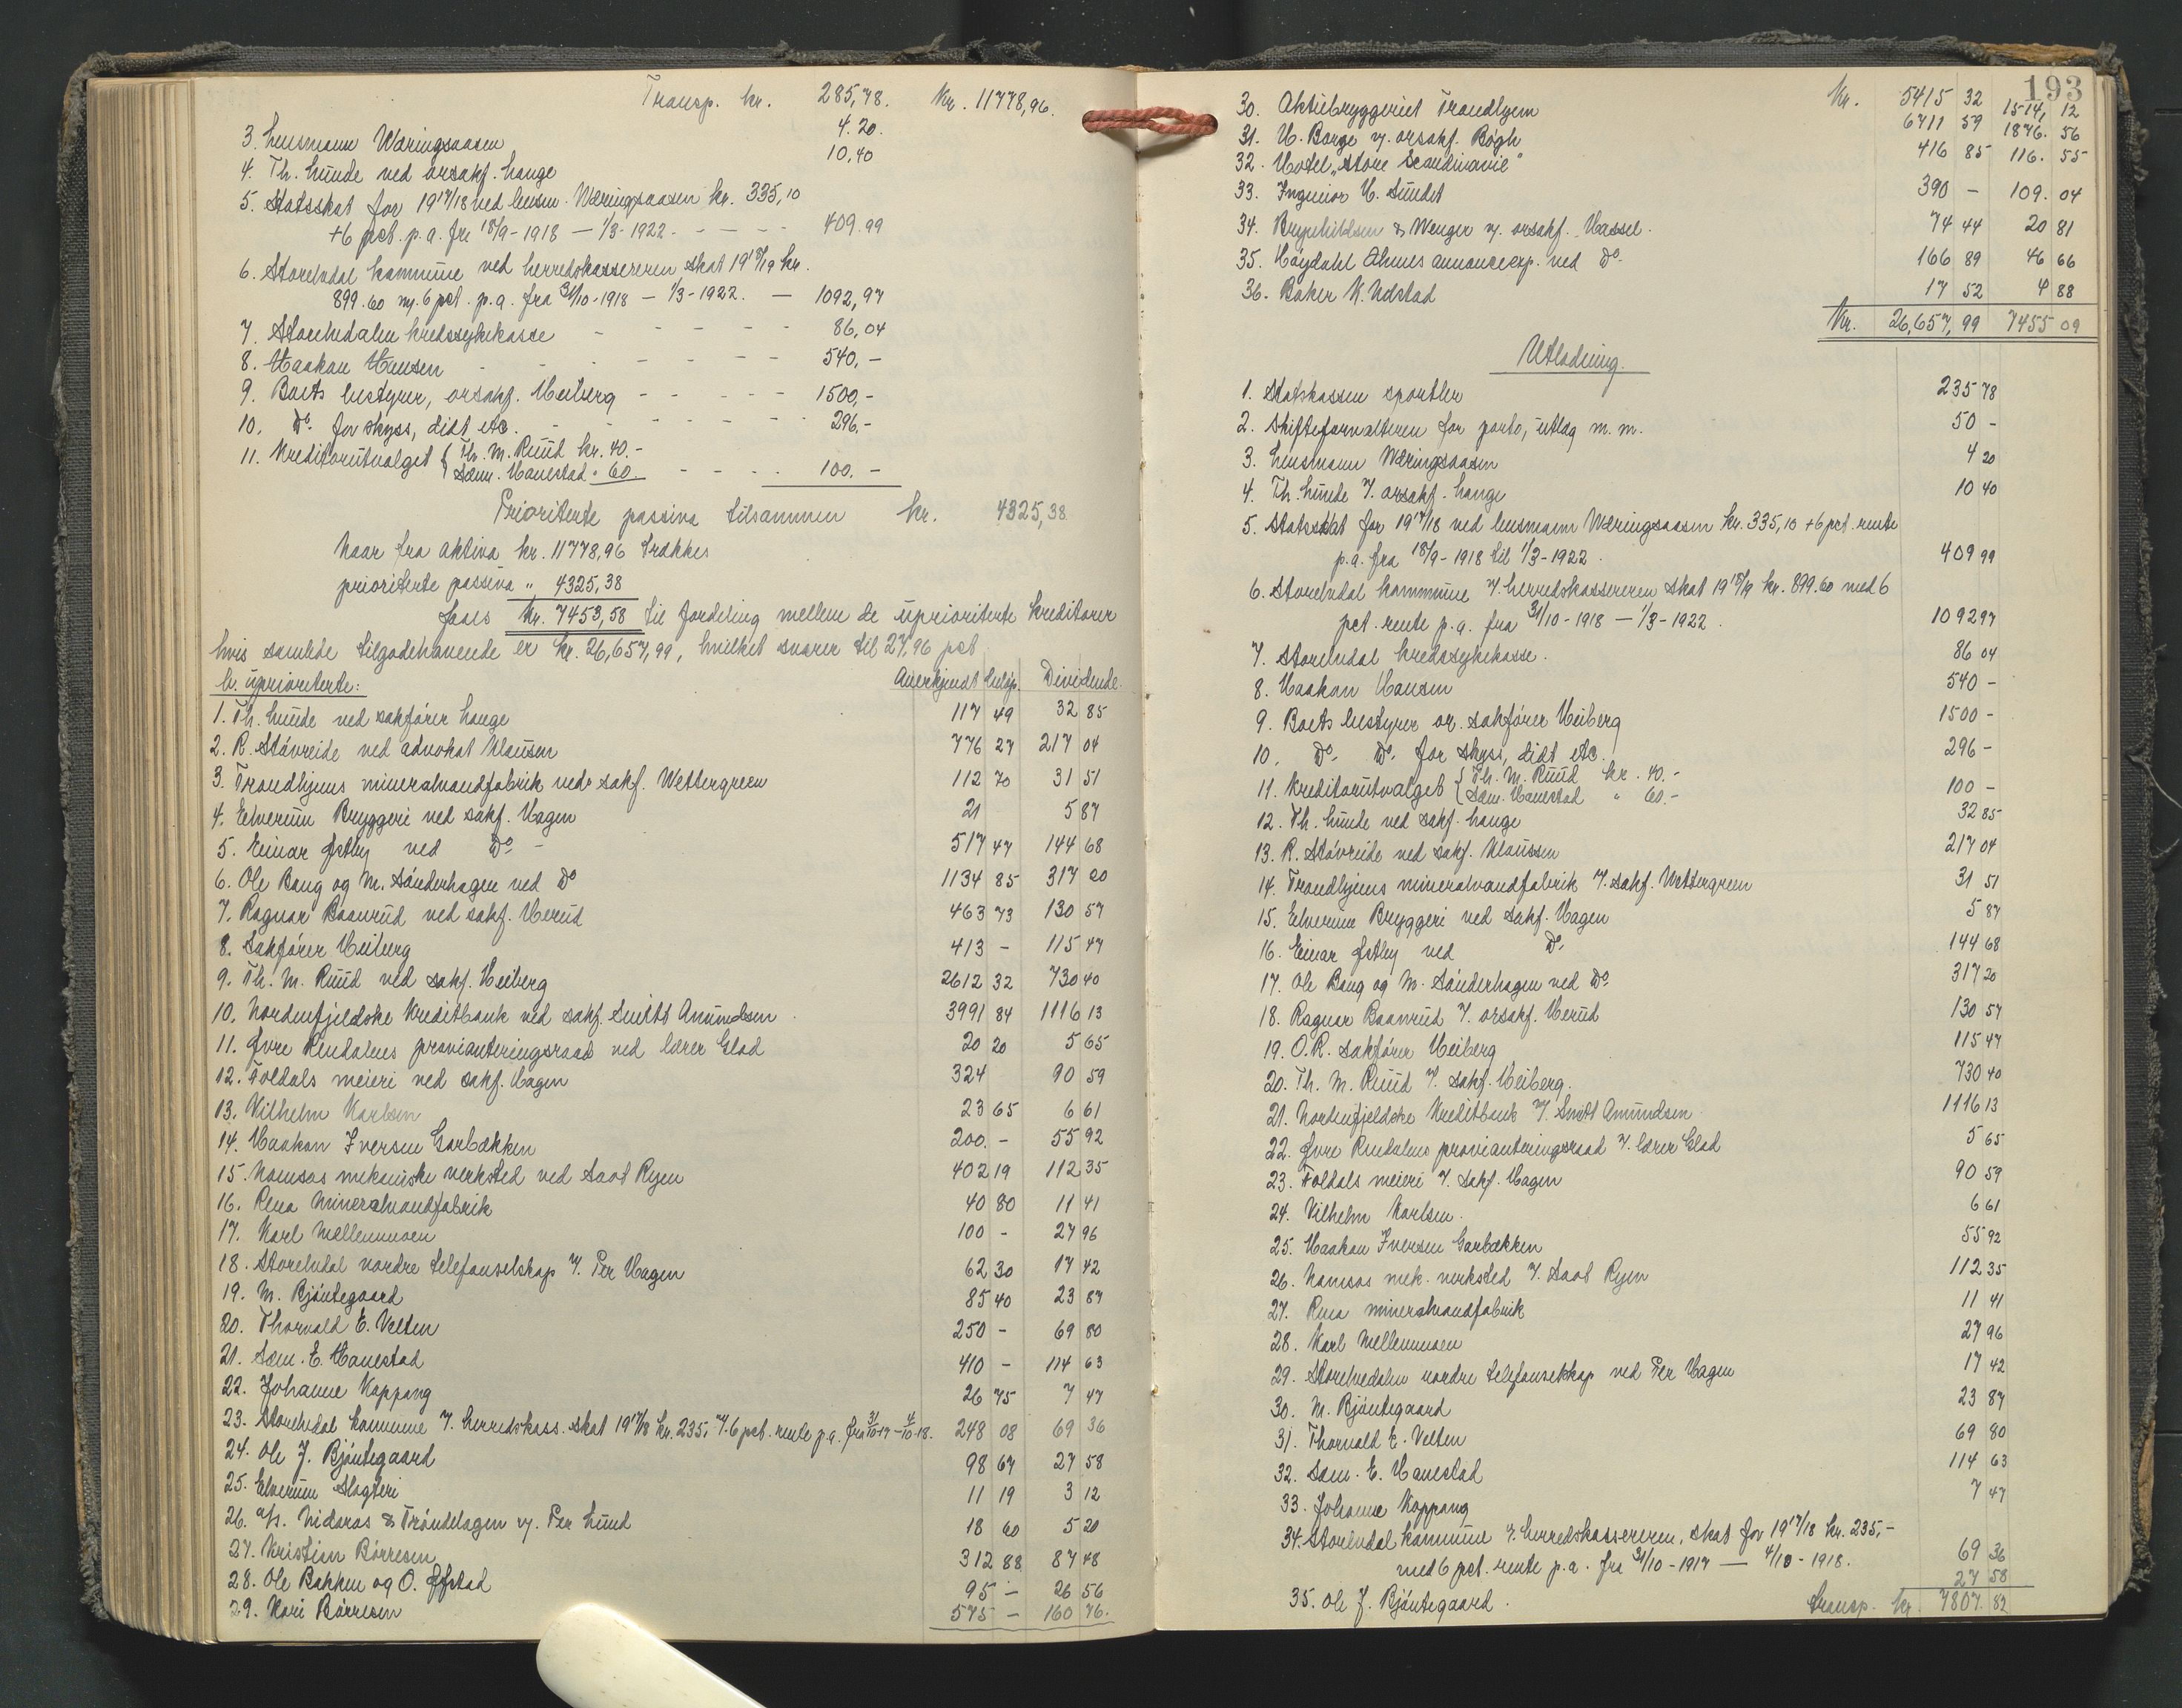 Transp. kr. 285,78. Kr. 11778,96.
3. Lensmann Wæringsaasen 4.20.
4. Th. Lunde ved orsakf. Lange 10,40
5. Statsskat for 1917/18 ved lensm. Wæringsaasen kr. 335,10
+6 pct. p.a. fra 18/9-1918 — 1/3-1922. - - - - 409.99
6. Storelvdal kommune ved herredskassereren skat 1918/19 kr.
899.60 m. 6 pct. p.a. fra 31/10-1918 — 1/3-1922. — 1092,97
7. Storelvdalen kredssykekasse - - - - - 86,04
8. Haakon Hansen - - - - - 540,-
9. Boets bestyrer, orsakf. Heiberg - - - - - 1500,-
10. Do. for skyss, diæt etc. - - - - - 296.-
11. Kreditorutvalget { Th. M. Ruud kr. 40.-
Sam. Hanestad " 60. - - - - 100.-
Prioriterte passiva tilsammen kr. 4325,38
Naar fra aktiva kr. 11778,96 trækkes
prioriterte passiva " 4325,38
faaes kr. 7453,58 til fordeling mellem de uprioriterte kreditorer
hvis samlede tilgodehavende er kr. 26,657,99, hvilket svarer til 27,96 pct
b. uprioriterte: Anerkjendt beløp. Dividende.
1. Th. Lunde ved sakfører Lange 117 49 32 85
2. R. Støvreide ved advokat Klausen 776 27 217 04
3. Trondhjems mineralvandfabrik ved sakf. Wettergreen 112 70 31 51
4. Elverum Bryggeri ved sakf. Hagen 21 5 87
5. Einar Østby ved Do - 517 47 144 68
6. Ole Bang og M. Sønderhagen ved Do 1134 85 317 20
7. Ragnar Baanrud ved sakf. Herud 463 73 130 57
8. Sakfører Heiberg 413 - 115 47
9. Th. M. Ruud ved sakf. Heiberg 2612 32 730 40
10. Nordenfjeldske Kreditbank ved sakf. Smitt Amundsen 3991 84 1116 13
11. Øvre Rendalens provianteringsraad ved lærer Glad 20 20 5 65
12. Foldals meieri ved sakf. Hagen 324 90 59
13. Vilhelm Karlsen 23 65 6 61
14. Haakon Iversen Garbækken 200. - 55 92
15. Namsos mekaniske verksted ved Saot Ryen 402 19 112 35
16. Rena Mineralvandfabrik 40 80 11 41
17. Karl Mellemmoen 100 - 27 96
18. Storelvdal nordre telefonselskap v. Per Hagen 62 30 17 42
19. M. Bjøntegaard 85 40 23 87
20. Thorvald E. Velten 250 - 69 80
21. Sam. E. Hanestad 410 - 114 63
22. Johanne Koppang 26 75 7 47
23. Storelvdal kommune v. herredskass. skat 1917/18 kr. 235,- 6 pct. rente p.a. fra 31/10-17 - 4/10-18. 248 08 69 36
24. Ole J. Bjøntegaard 98 67 27 58
25. Elverum Slagteri 11 19 3 12
26. a/s. Nidaros & Trøndelagen v. Per Lund 18 60 5 20
27. Kristian Børresen 312 88 87 48
28. Ole Bakken og O. Øfstad 95 - 26 56
29. Kari Børresen 575 - 160 76.
193
30. Aktiebryggeriet Trondhjem Kr. 5415 32 1514, 12
31. H. Borge v. orsakf. Bøgh 6711 59 1876. 56
32. Hotel "Store Scandinavie" 416 85 116. 55
33. Ingeniør H. Sundet 390 - 109. 04
34. Brynhildsen & Wenger v. orsakf. Hassel. 74 44 20 81
35. Høydahl Ohmes annonceexp. ved Do. 166 89 46 66
36. Baker K. Udstad 17 52 4 88
Kr. 26,657, 99 7455 09
Utlodning.
1. Statskassen sportler 235 78
2. Skifteforvalteren for porto, utlæg m. m. 50 -
3. Lensmann Wæringsaasen 4 20
4. Th. Lunde v. orsakf. Lange 10 40
5. Statsskat for 1917/18 ved lensmann Wæringsaasen kr. 335,10 +6 pct. rente
p.a. fra 18/9-1918 til 1/3-1922. 409 99
6. Storelvdal kommune v. herredskassereren skat 1918/19 kr. 899.60 med 6
pct. rente p.a. fra 31/10-1918 — 1/3-1922. 1092 97
7. Storelvdal kredssykekasse. 86 04
8. Haakon Hansen 540 -
9. Boets bestyrer or. sakfører Heiberg 1500 -
10. Do. Do. for skyss, diæt etc. 296 -
11. Kreditorutvalget { Th. M. Ruud kr. 40.-
Sam. Hanestad " 60.- 100 -
12. Th. Lunde ved sakf. Lange 32 85
13. R. Støvreide ved sakf. Klaussen 217 04
14. Trondhjems mineralvandfabrik v. sakf. Wettergreen 31 51
15. Elverum Bryggeri ved sakf. Hagen 5 87
16. Einar Østby ved Do. 144 68
17. Ole Bang og M. Sønderhagen ved Do. 317 20
18. Ragnar Baanrud v. orsakf. Herud 130 57
19. O.R. sakfører Heiberg 115 47
20. Th. M. Ruud v. sakf. Heiberg. 730 40
21. Nordenfjeldske Kreditbank v. Smitt Amundsen 1116 13
22. Øvre Rendalens provianteringsraad v. lærer Glad 5 65
23. Foldals meieri v. sakf. Hagen 90 59
24. Vilhelm Karlsen. 6 61
25. Haakon Iversen Garbækken 55 92
26. Namsos mek. verksted v. Saot Ryen 112 35
27. Rena mineralvandfabrik 11 41
28. Karl Mellemmoen 27 96
29. Storelvedalen nordre telefonselskap ved Per Hagen 17 42
30. M. Bjøntegaard 23 87
31. Thorvald E. Velten 69 80
32. Sam. E. Hanestad 114 63
33. Johanne Koppang 7 47
34. Storelvdal kommune v. herredskassereren, skat for 1917/18 kr. 235,-
med 6 pct. rente p.a. fra 31/10-1917 — 4/10-1918. 69 36
35. Ole J. Bjøntegaard. 27 58
transp. kr. 7807. 82